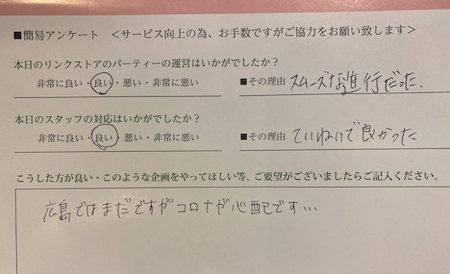 ■簡易アンケート <サービス向上の為、お手数ですがご協力をお願い致します>
本日のリンクストアのパーティーの運営はいかがでしたか?
非常に良い・良い・悪い・非常に悪い ■その理由 スムーズな進行だった.
本日のスタッフの対応はいかがでしたか?
非常に良い・良い・悪い・非常に悪い ■その理由 ていねいで良かった
こうした方が良い・このような企画をやってほしい等、ご要望がございましたらご記入ください。
広島ではまだですがコロナが心配です...